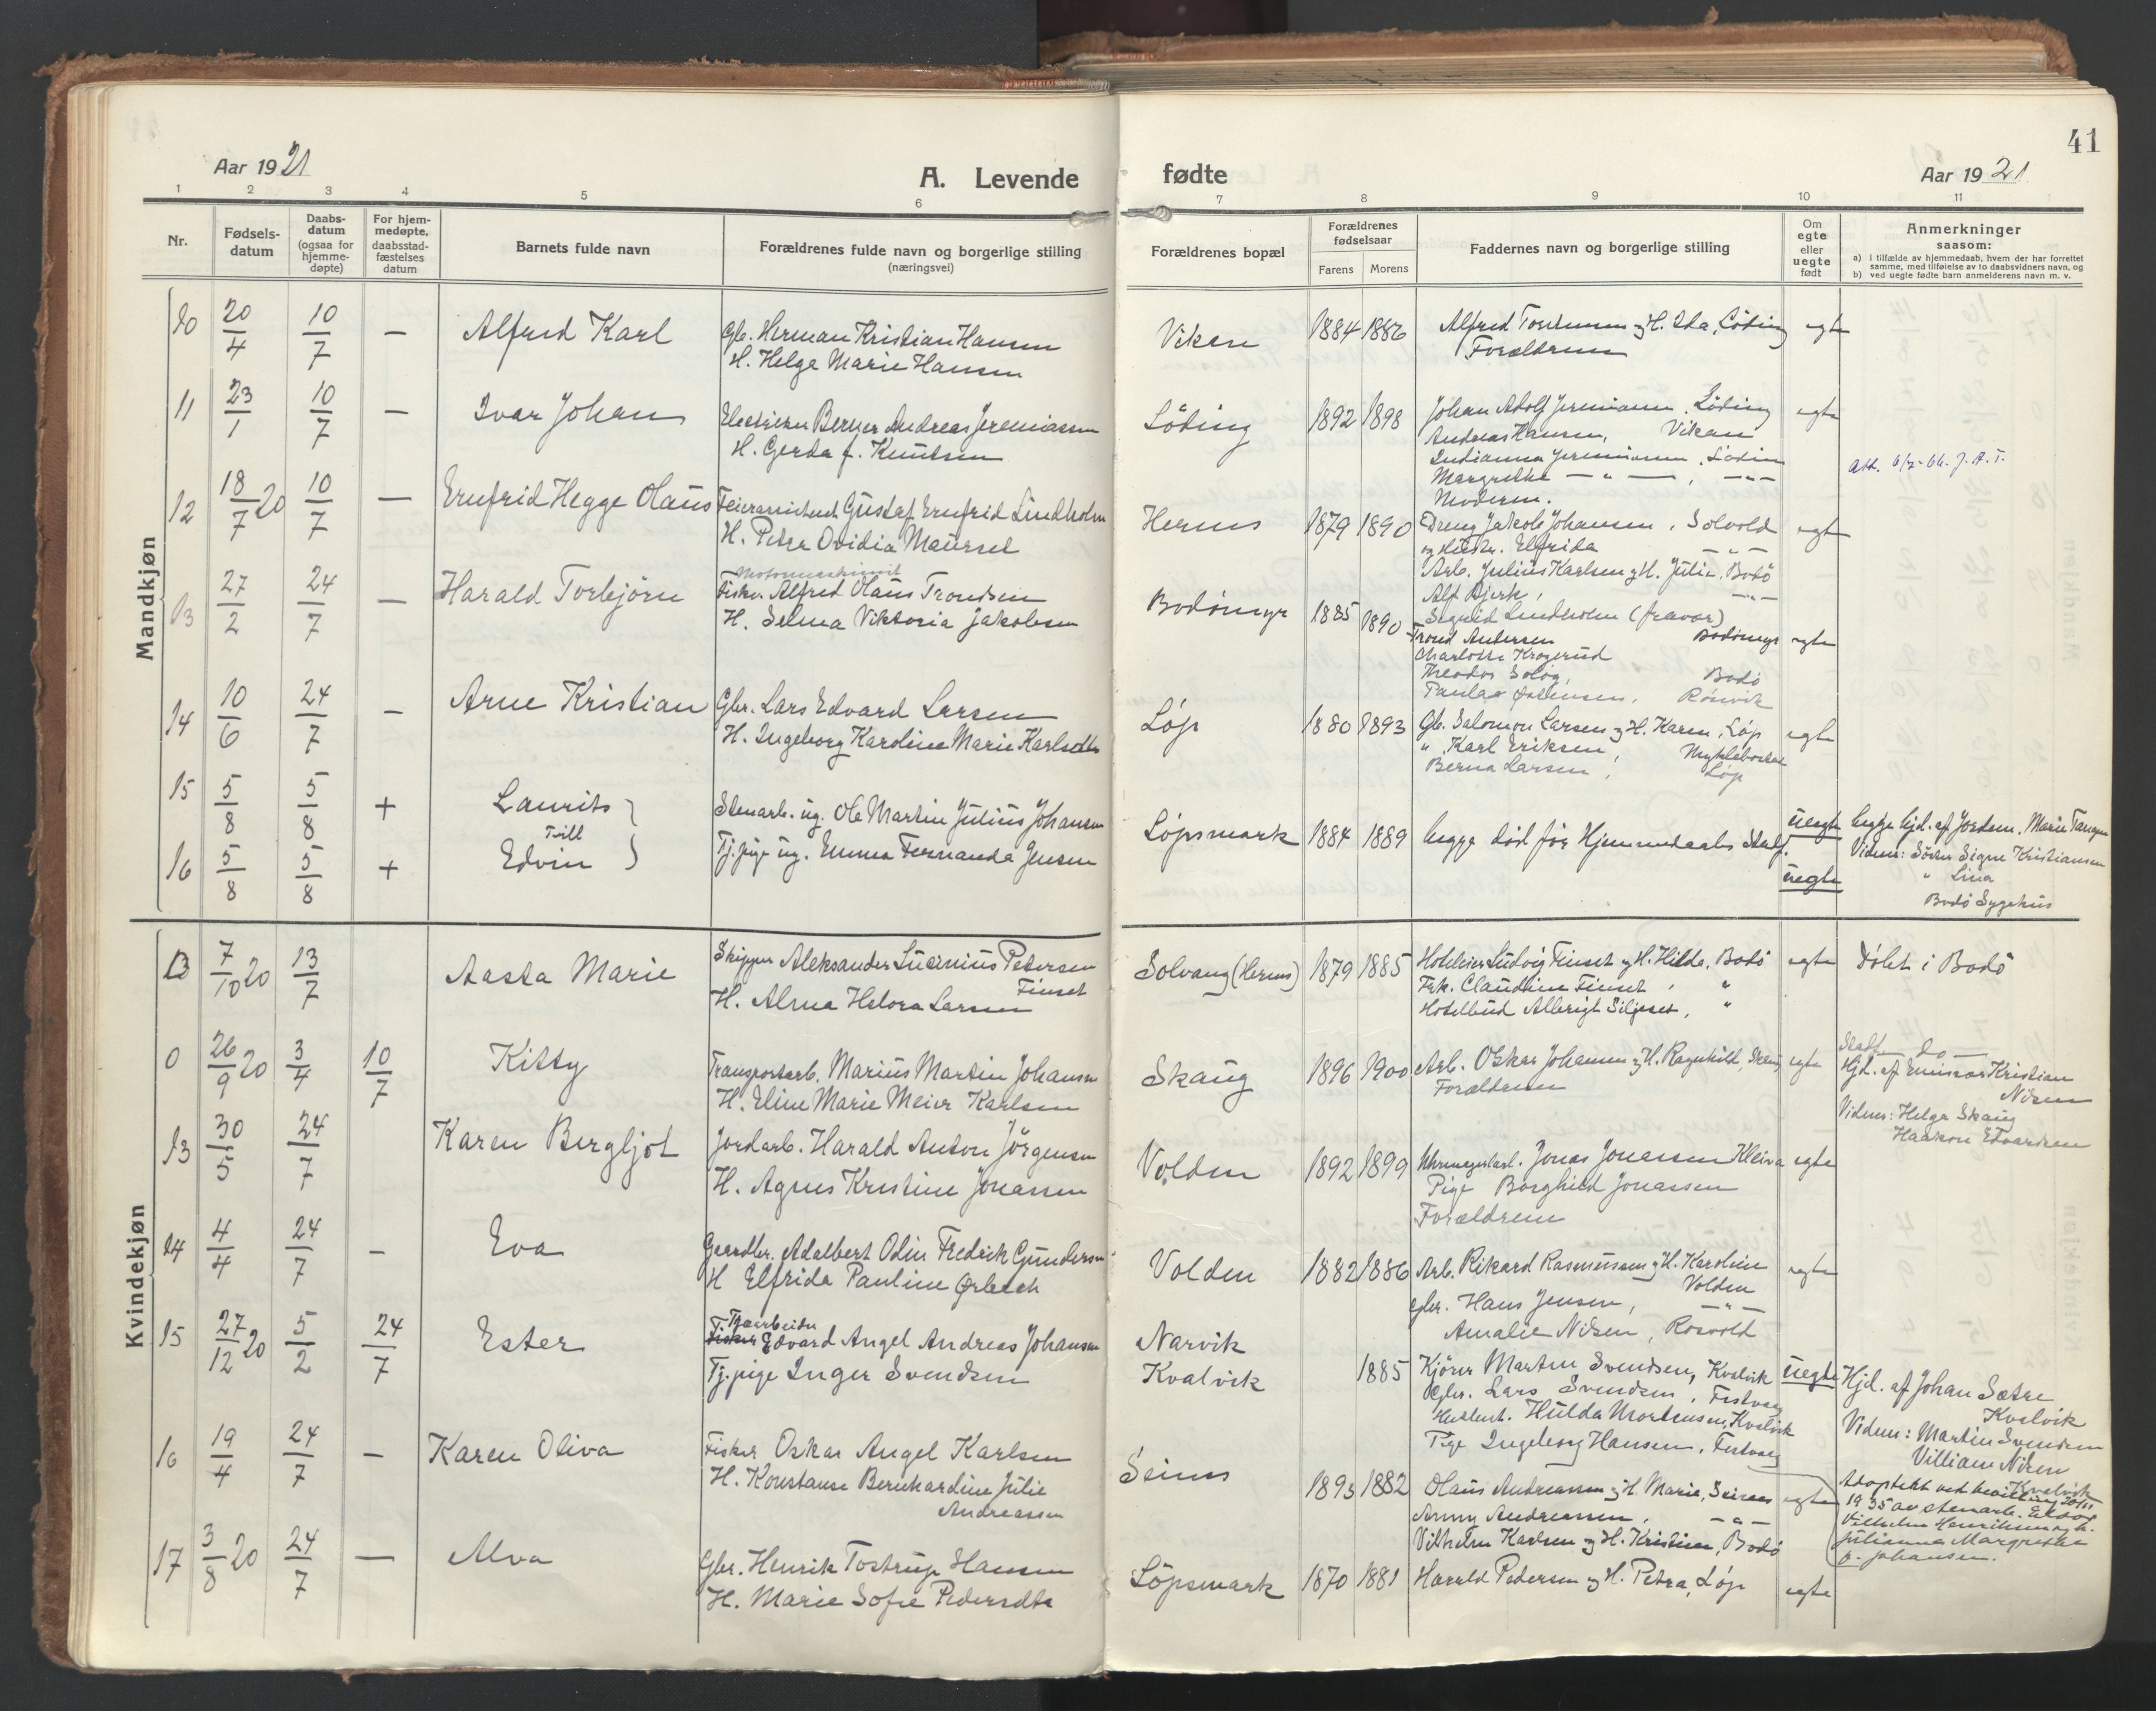 41
Aar 1921
A. Levende fødte
Aar 1921
1 2 3 4 5 6 7 8 9 10 11
Nr.
Fødsels-
datum
Daabs-
datum
(ogsaa for
hjemme-
døpte)
For hjem-
medøpte,
daabsstad-
fæstelses
datum
Barnets fulde navn
Forældrenes fulde navn og borgerlige stilling
(næringsvei)
Forældrenes bopæl
Forældrenes
fødselsaar
Farens Morens
Faddernes navn og borgerlige stilling
Om
egte
eller
uegte
født
Anmerkninger
saasom:
a) i tilfælde av hjemmedaab, hvem der har forrettet
samme, med tilføielse av to daabsvidners navn, og
b) ved uegte fødte barn anmelderens navn m. v.
Mandkjøn
10 20/4 10/7 — Alfred Karl
Gbr. Herman Kristian Hansen
H. Helga Marie Hansen
Viken 1884 1886
H. Ida, Löding
Forældrene
egte
11 23/1 10/7 — Ivar Johan
Berger Andreas Jeremiassen
H. Gerda f. Knudsen
Löding 1892 1898
Johan Adolf Jeremiassen, Löding
Andreas Hansen, Vikan
Indianna Jeremiassen, Löding
Margrethe — " — , — " —
Moderen.
egte
12 18/7 20 10/7 — Ernfrid Hegge Olaus
Gustaf Ernfrid Lindholm
H. Petra Ovidia Maursel
Hernes 1879 1890
Dreng Jakob Johansen, Solvold
og Elfrida — " —
Arb. Julius Karlsen og H. Julie, Bodö
Alf Bjerk, — " —
Sigurd Lindholm (fravær)
egte
13 27/2 24/7 — Harald Torbjörn
Fisker Alfred Olaus Trondsen
H. Selma Viktoria Jakobsen
Bodömyr 1885 1890
Trond Andersen Bodömyr
Charlotte Krogerud
Theodor Bodö
Paula Rönvik
egte
14 10/6 24/7 — Arne Kristian
Gbr. Lars Edvard Larsen
H. Ingeborg Karoline Marie Karlsdtr
Løp 1880 1893
Gb. Salomon Larsen og H. Karen, Løp
" Karl Eriksen,
Berna Larsen, Løp
egte
15 5/8 5/8 + Laurits
Tvill
16 5/8 5/8 + Edvin
Stenarb. ug. Ole Martin Julius Johansen
Tj. pige ug. Emma Fernanda Jensen
Löpsmark 1884 1889
begge död för Hjemmedaabs Stadf.
uegte
uegte
begge hjd. af Jordm. Marie Tangen
Vidner: Söster Signe Kristiansen
" Lina
Bodö Sygehus
Kvindekjøn
13 7/10 20 13/7 Aasta Marie
Skipper Aleksander Lucinius Petersen
Finset
H. Alma Helora Larsen
Solvang (Hernes) 1879 1885
Hoteleier Ludvig Finset og H. Hilda, Bodö
Frk. Claudine Finset, "
Hotelbud Albrigt "
egte
Döbt i Bodö
0 26/9 20 3/4 10/7 Kitty
Transportarb. Marius Martin Johansen
H. Eline Marie Meier Karlsen
Skaug 1896 1900
Arb. Oskar Johansen og H. Ragnhild, Skaug
Forældrene
egte
Hjd. af Emissær Kristian
Nilsen
Vidner: Helga Skaug
Haakon Edvardsen
13 30/5 24/7 Karen Bergljot
Jordarb. Harald Anton Jörgensen
H. Agnes Kristine Jonassen
Volden 1892 1899
Jonas Jonassen Kleiva
Pige Borghild Jonassen
Forældrene
egte
14 4/4 24/7 — Eva
Gaardbr. Adalbert Odin Fredrik Gundersen
H Elfrida Pauline Ørbech
Volden 1882 1886
Arb. Rikard Rasmussen og H. Karoline
Volden
Gbr. Hans Jensen, — " —
Amalie Nilsen, Rösvold
egte
15 27/12 20 5/2 24/7 Ester
Edvard Angel Andreas Johansen
Tj. pige Inger Svendsen
Narvik
Kvalvik 1885
Kjörer Martin Svendsen, Kvalvik
Gbr. Lars Svendsen, Festvaag
Hulda Mortensen, Kvalvik
Pige Ingeborg Hansen, Festvaag
uegte
Hjd. af Johan Sætre
Kvalvik
Vidner: Martin Svendsen
Villiam Nilsen
Kvalvik
16 19/4 24/7 — Karen Oliva
Fisker Oskar Angel Karlsen
H. Konstanse Bernhardine Julie
Andreassen
Seines 1893 1882
Olaus Andreassen og H. Marie, Seines
Anny Andreassen, — " —
Vilhelm Karlsen og H. Kristine, Bodö
egte
Adoptert ved bevilling
1935 av stenarb.
Vilhelm Henriksen og h.
Julianna Margrethe
f. Johansen.
17 3/8 20 24/7 — Alva
Gbr. Henrik Tostrup Hansen
H. Marie Sofie Pedersdtr
Löpsmark 1870 1881
Harald Pedersen og H. Petra, Løp
egte